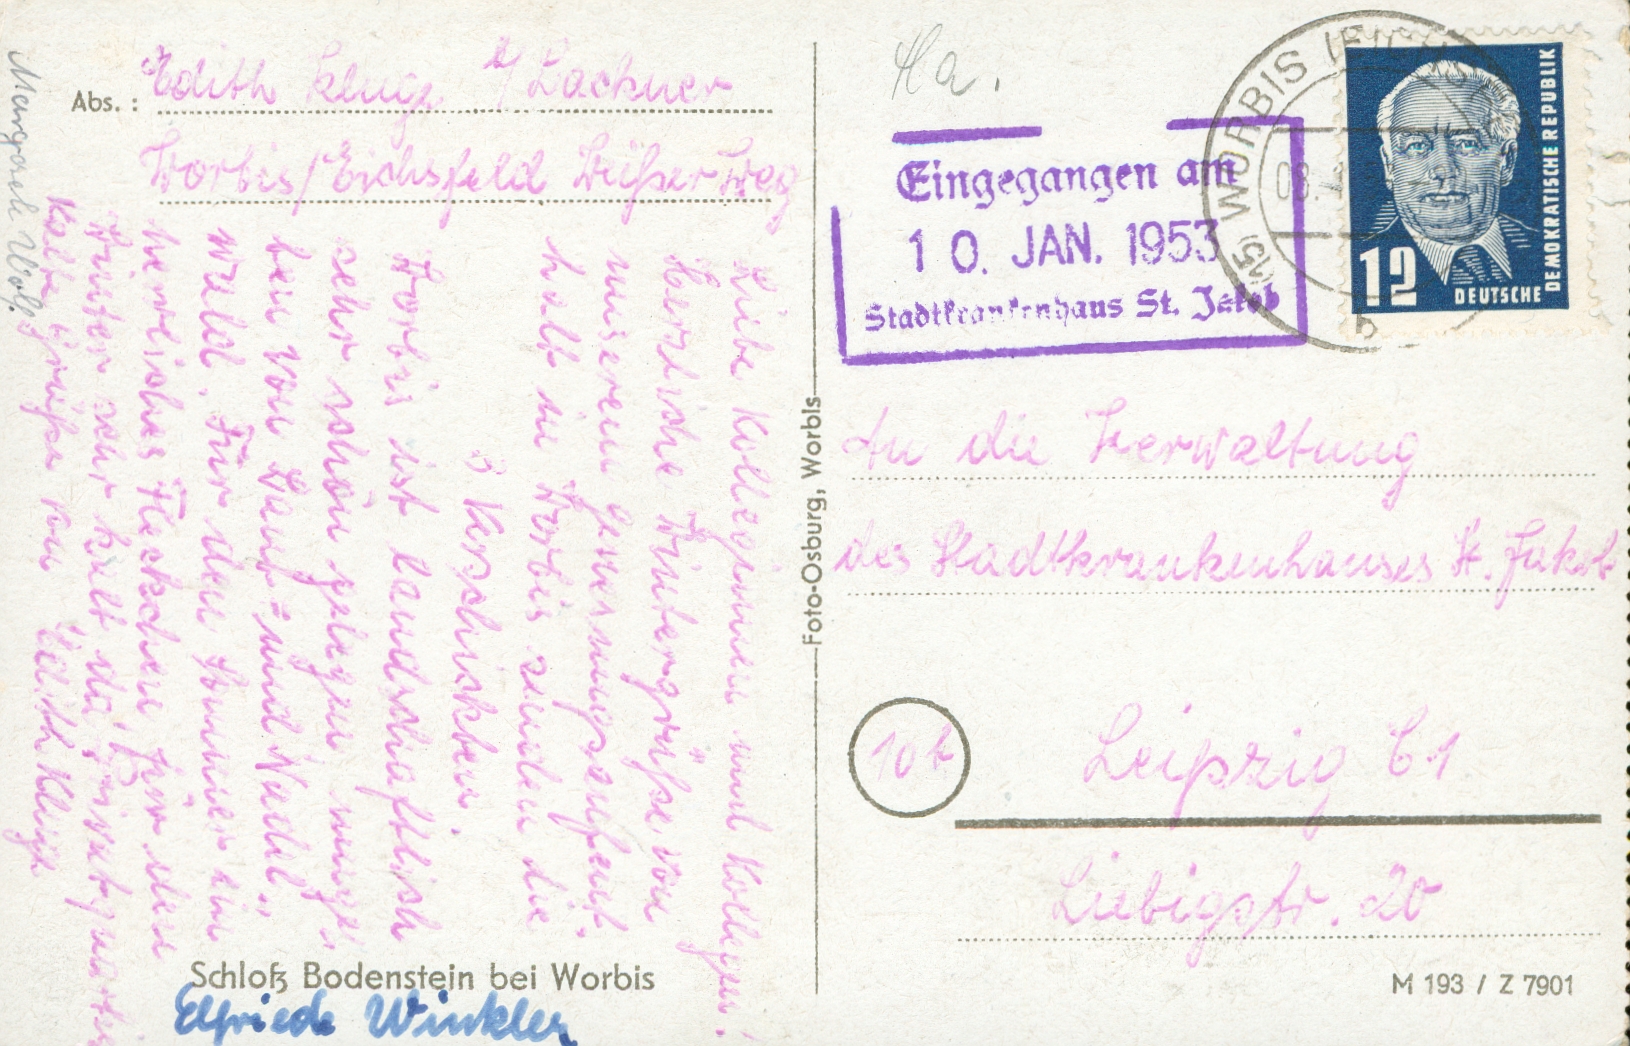 Abs.: Edith Kluge b/ Lackner
Worbis/Eichsfeld Weißer Weg
Liebe Kolleginnen und Kollegen!
Herzliche Wintergrüße von
unserem Genesungsaufent-
halt in Worbis senden die
3 Verschickten.
Worbis ist landschaftlich
sehr schön gelegen umge-
ben von Laub- und Nadel-
wald. Für den Sommer ein
herrliches Fleckchen für den
Winter sehr kalt die Privatquartiere
Kalte Grüße von Edith Kluge
Margarete Wolf
Schloß Bodenstein bei Worbis
Elfriede Winkler
Foto-Osburg, Worbis
Ha.
Eingegangen am
10. JAN. 1953
Stadtkrankenhaus St. Jakob
(15) WORBIS
b
12
DEUTSCHE DEMOKRATISCHE REPUBLIK
An die Verwaltung
des Stadtkrankenhauses St. Jakob
10b
Leipzig C1
Liebigstr. 20
M 193 / Z 7901